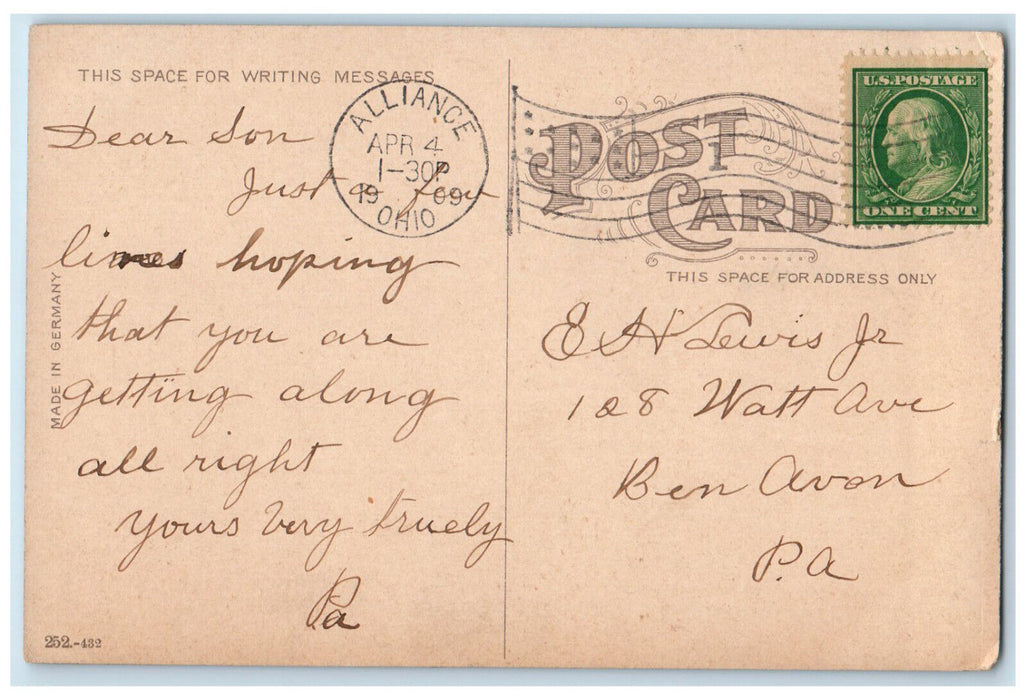 THIS SPACE FOR WRITING MESSAGES
Dear Son
Just a few
lines hoping
that you are
getting along
all right
yours very truely
Pa
MADE IN GERMANY
252.-432
ALLIANCE
APR 4
1-30P
1909
OHIO
POST
CARD
1
U.S. POSTAGE
ONE CENT
THIS SPACE FOR ADDRESS ONLY
E H Lewis Jr
128 Watt Ave
Ben Avon
P.A